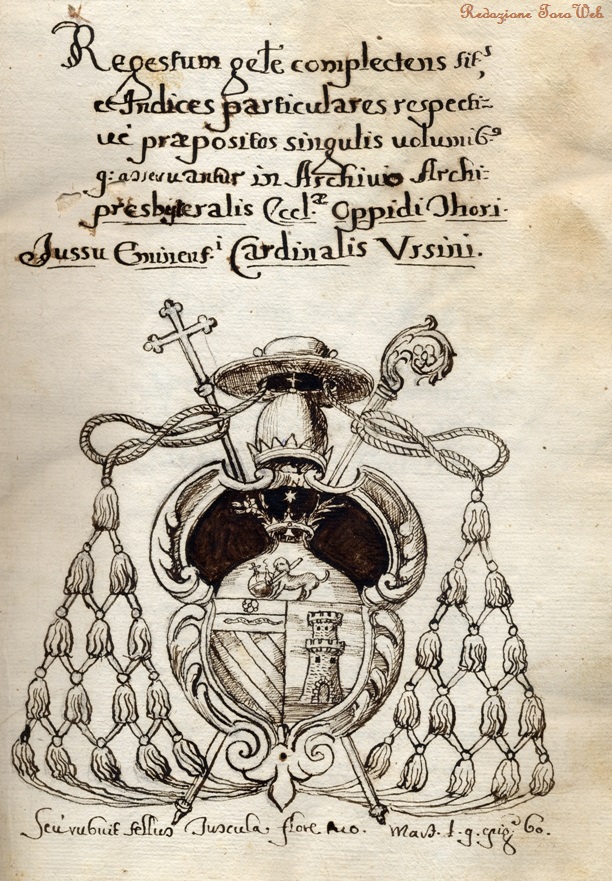 Redazione ToroWeb
Regestum gēle complectens sit,ˢ
et Indices particulares respecti-
vè præpositos singulis volumib9
q: asservantur in Archivio Archi-
presbyteralis Eccl.æ Oppidi Thori.
Jussu Eminens.i Cardinalis Vrsini.
Seu rubuit tellus Tuscula flore suo. Mart. l. 9. epig. 60.